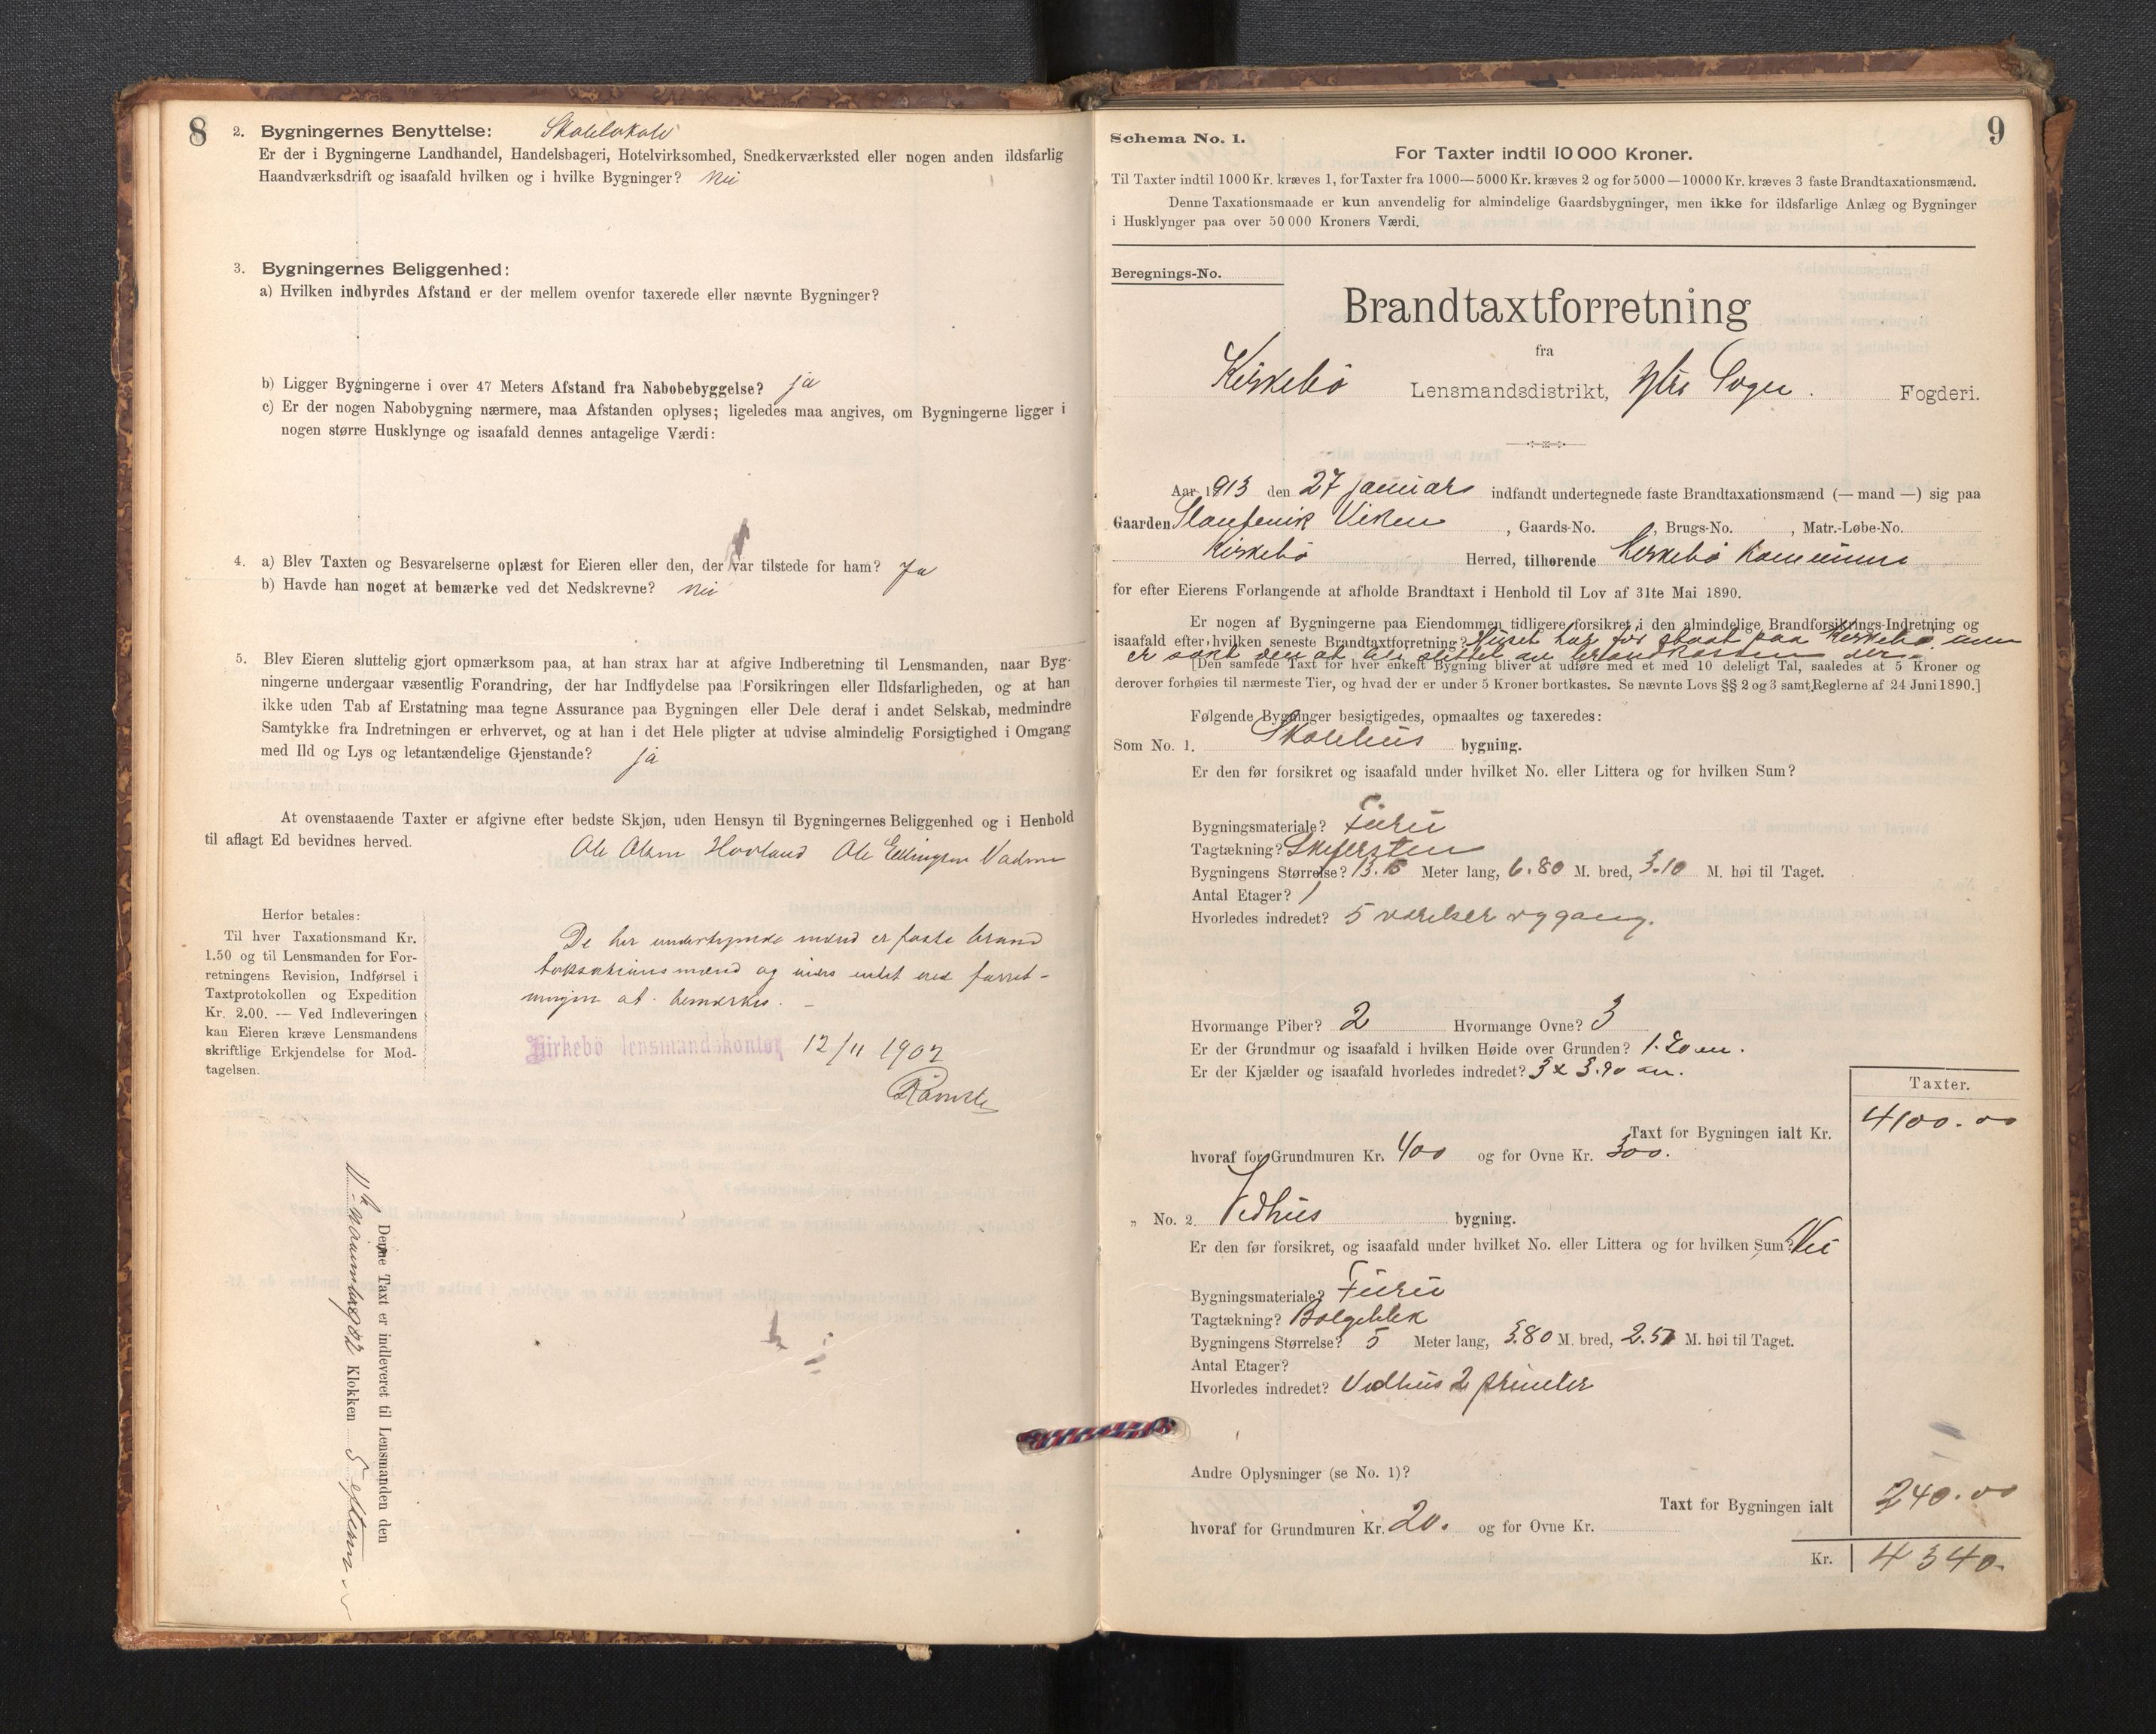 8
2. Bygningernes Benyttelse: Skolelokale
Er der i Bygningerne Landhandel, Handelsbageri, Hotelvirksomhed, Snedkerværksted eller nogen anden ildsfarlig
Haandværksdrift og isaafald hvilken og i hvilke Bygninger? Nei
3. Bygningernes Beliggenhed:
a) Hvilken indbyrdes Afstand er der mellem ovenfor taxerede eller nævnte Bygninger?
b) Ligger Bygningerne i over 47 Meters Afstand fra Nabobebyggelse? ja
c) Er der nogen Nabobygning nærmere, maa Afstanden oplyses; ligeledes maa angives, om Bygningerne ligger i
nogen større Husklynge og isaafald dennes antagelige Værdi:
4. a) Blev Taxten og Besvarelserne oplæst for Eieren eller den, der var tilstede for ham? Ja
b) Havde han noget at bemærke ved det Nedskrevne? Nei
5. Blev Eieren sluttelig gjort opmærksom paa, at han strax har at afgive Indberetning til Lensmanden, naar Byg-
ningerne undergaar væsentlig Forandring, der har Indflydelse paa Forsikringen eller Ildsfarligheden, og at han
ikke uden Tab af Erstatning maa tegne Assurance paa Bygningen eller Dele deraf i andet Selskab, medmindre
Samtykke fra Indretningen er erhvervet, og at han i det Hele pligter at udvise almindelig Forsigtighed i Omgang
med Ild og Lys og letantændelige Gjenstande? ja
At ovenstaaende Taxter er afgivne efter bedste Skjøn, uden Hensyn til Bygningernes Beliggenhed og i Henhold
til aflagt Ed bevidnes herved.
Ole Olsen Hovland Ole Ellingsen Vadheim
Herfor betales:
Til hver Taxationsmand Kr.
1.50 og til Lensmanden for For-
retningens Revision, Indførsel i
Taxtprotokollen og Expedition
Kr. 2.00. — Ved Indleveringen
kan Eieren kræve Lensmandens
skriftlige Erkjendelse for Mod-
tagelsen.
De her undertegnede mænd er faste brand
taksationsmænd og intet ved forret-
ningen at bemærkes. –
Kirkebö lensmandskontor 12/11 1907
Denne Taxt er indleveret til Lensmanden den
11te November 07 Klokken 5 efterm.
9
Schema No. 1.
For Taxter indtil 10 000 Kroner.
Til Taxter indtil 1000 Kr. kræves 1, for Taxter fra 1000—5000 Kr. kræves 2 og for 5000—10000 Kr. kræves 3 faste Brandtaxationsmænd.
Denne Taxationsmaade er kun anvendelig for almindelige Gaardsbygninger, men ikke for ildsfarlige Anlæg og Bygninger
i Husklynger paa over 50 000 Kroners Værdi.
Beregnings-No.
Brandtaxtforretning
fra
Kirkebö Lensmandsdistrikt, Ytre Sogn. Fogderi.
Aar 1913 den 27 januar indfandt undertegnede faste Brandtaxationsmænd (— mand —) sig paa
Gaarden Viken, Gaards-No. , Brugs-No. , Matr.-Løbe-No.
Kirkebö Herred, tilhørende Kirkebö Kommune
for efter Eierens Forlangende at afholde Brandtaxt i Henhold til Lov af 31te Mai 1890.
Er nogen af Bygningerne paa Eiendommen tidligere forsikret i den almindelige Brandforsikrings-Indretning og
isaafald efter hvilken seneste Brandtaxtforretning? Huset har för staat paa Kirkebø men
er
[Den samlede Taxt for hver enkelt Bygning bliver at udføre med et med 10 deleligt Tal, saaledes at 5 Kroner og
derover forhøies til nærmeste Tier, og hvad der er under 5 Kroner bortkastes. Se nævnte Lovs §§ 2 og 3 samt Reglerne af 24 Juni 1890.]
Følgende Bygninger besigtigedes, opmaaltes og taxeredes:
Som No. 1. Skolehus bygning.
Er den før forsikret og isaafald under hvilket No. eller Littera og for hvilken Sum?
Bygningsmateriale? Furu
Tagtækning? Skifersten
Bygningens Størrelse? 13. Meter lang, 6.80 M. bred, 3.10 M. høi til Taget.
Antal Etager? 1
Hvorledes indredet? 5 værelser og gang.
Hvormange Piber? 2 Hvormange Ovne? 3
Er der Grundmur og isaafald i hvilken Høide over Grunden? 1.20 m.
Er der Kjælder og isaafald hvorledes indredet? 3 x 3.90 m.
Taxter.
Taxt for Bygningen ialt Kr. 4100.00
hvoraf for Grundmuren Kr. 400 og for Ovne Kr. 300.
„ No. 2 Vedhus bygning.
Er den før forsikret, og isaafald under hvilket No. eller Littera og for hvilken Sum? Nei
Bygningsmateriale? Furu
Tagtækning? Bølgeblek
Bygningens Størrelse? 5 Meter lang, 3.80 M. bred, 2.50 M. høi til Taget.
Antal Etager?
Hvorledes indredet? Vedhus 2 priveter
Andre Oplysninger (se No. 1)?
Taxt for Bygningen ialt 240.00
hvoraf for Grundmuren Kr. 20. og for Ovne Kr.
Kr. 4340.